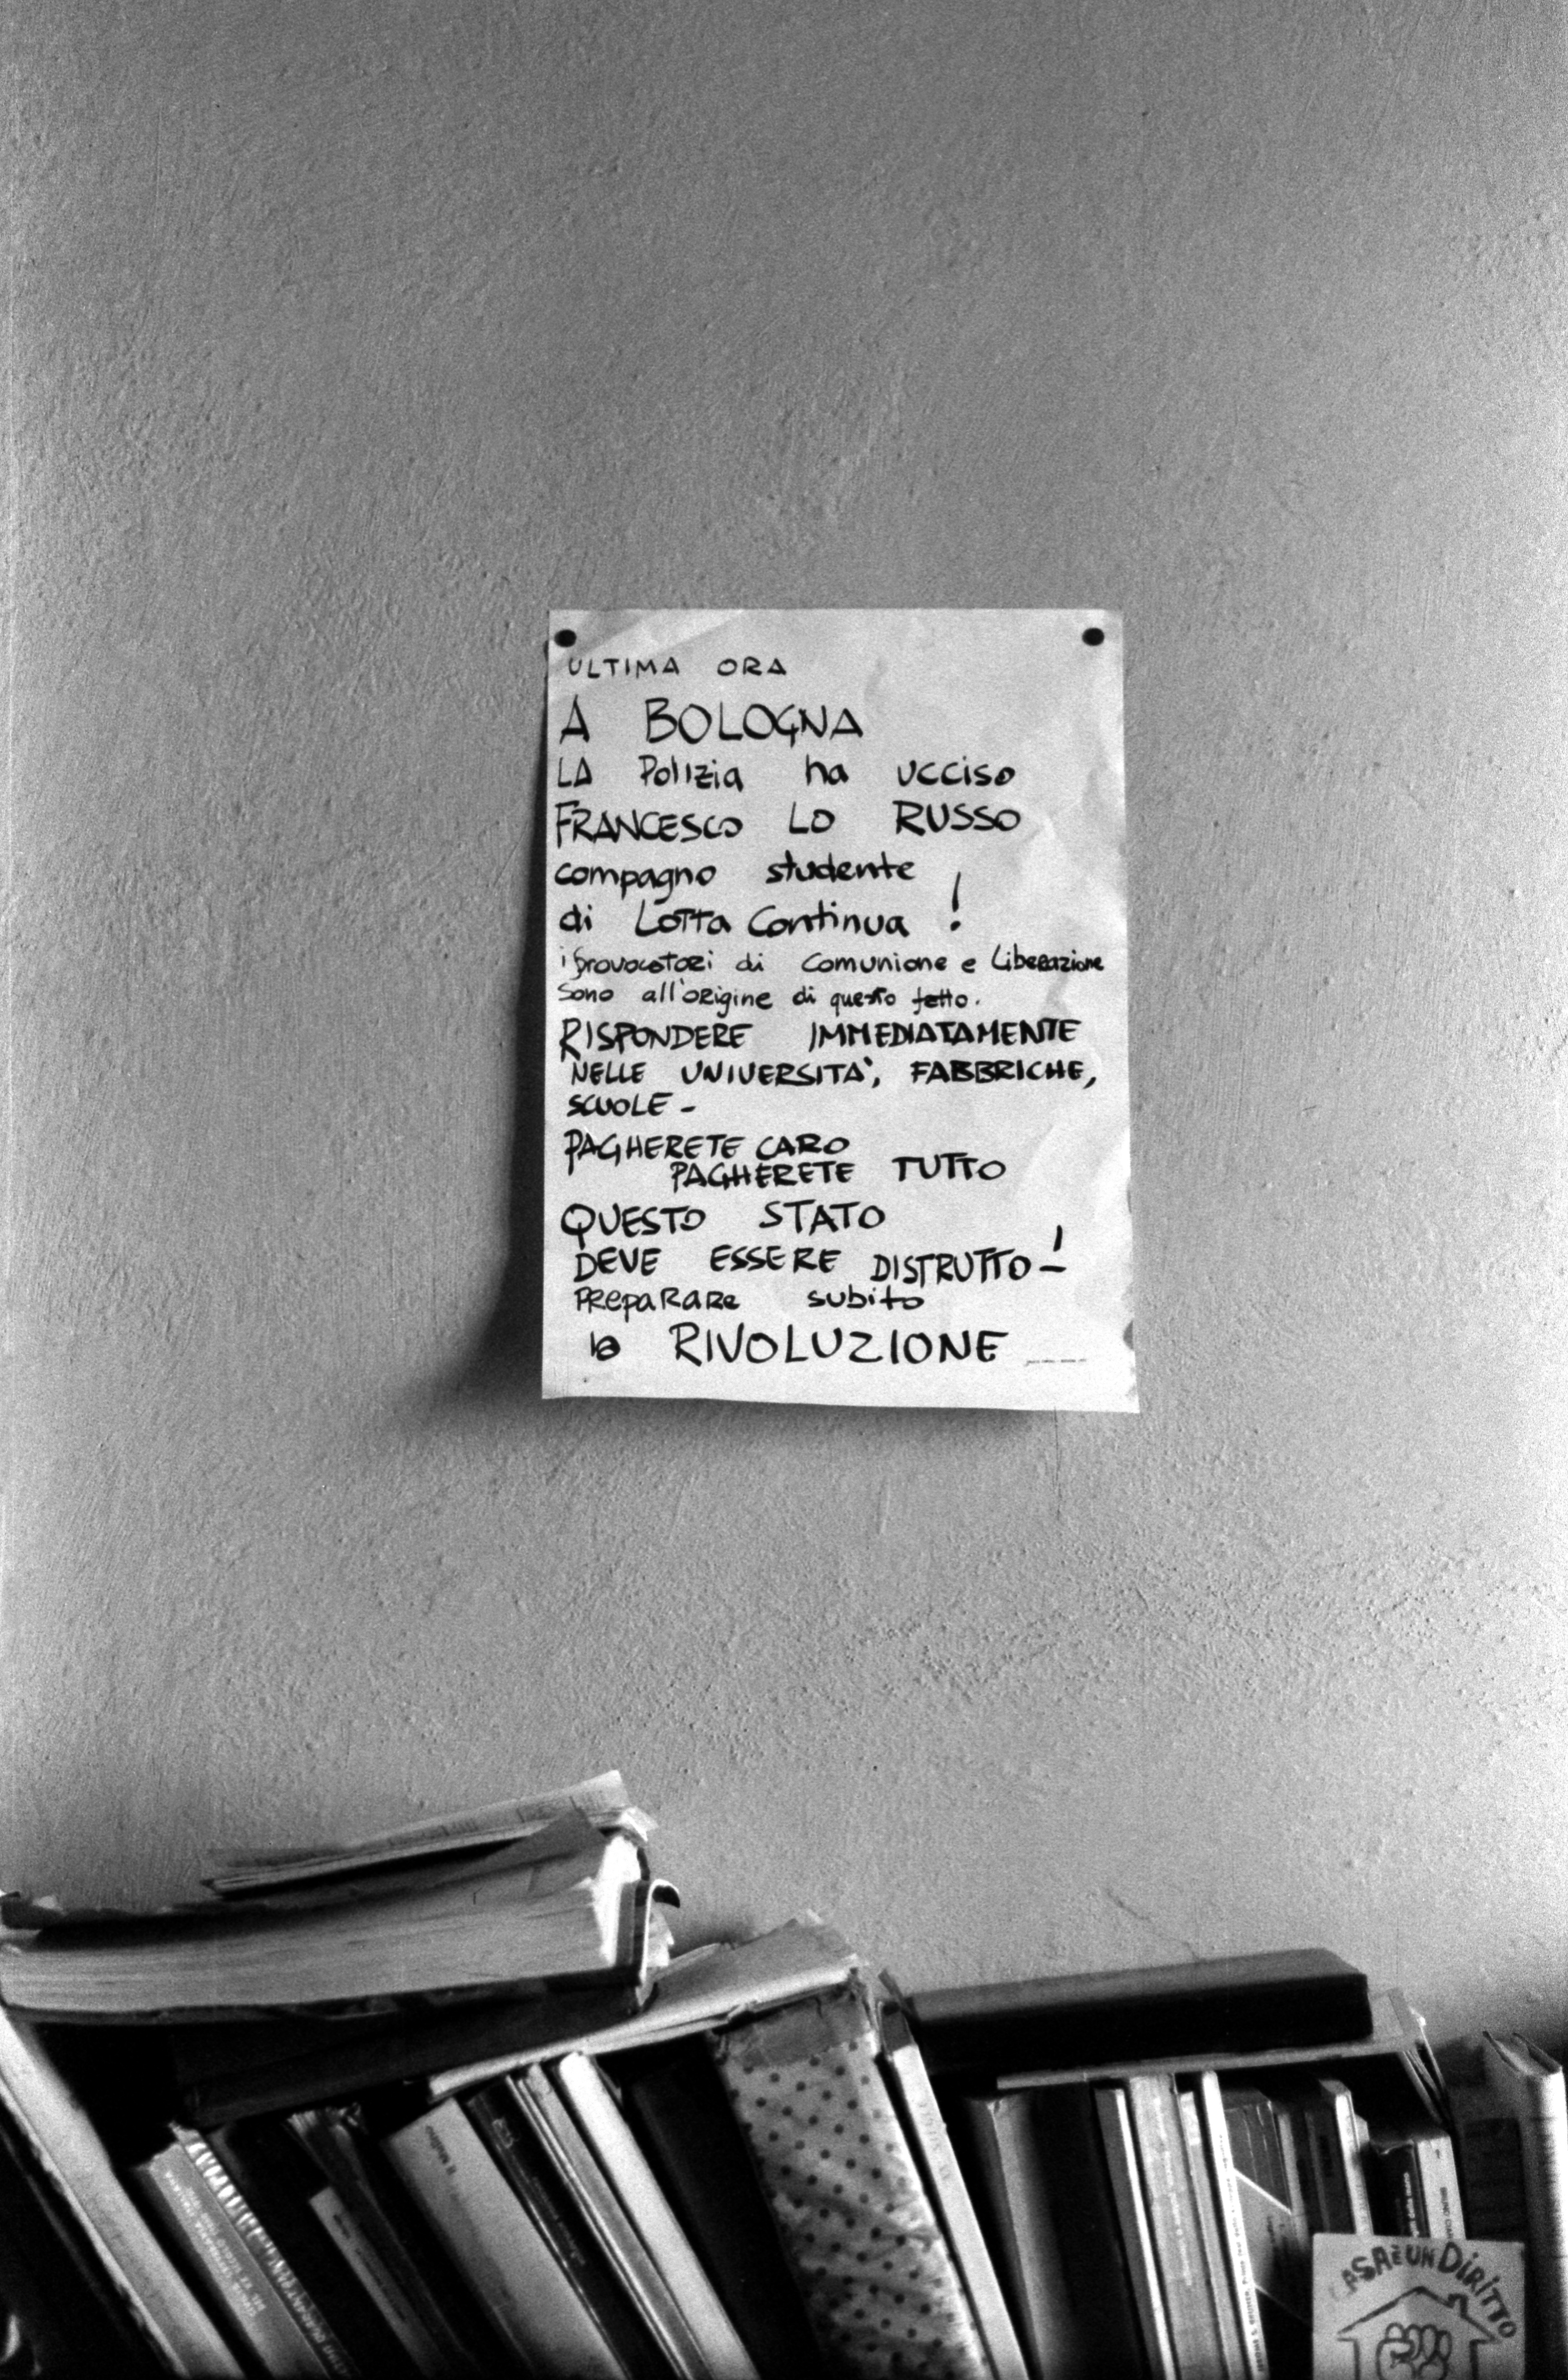 ULTIMA ORA
A BOLOGNA
LA Polizia ha ucciso
FRANCESCO LO RUSSO
compagno studente
di Lotta Continua !
i provocatori di Comunione e Liberazione
sono all'origine di questo fatto.
RISPONDERE IMMEDIATAMENTE
NELLE UNIVERSITA', FABBRICHE,
SCUOLE -
PAGHERETE CARO
PAGHERETE TUTTO
QUESTO STATO
DEVE ESSERE DISTRUTTO - !
PREPARARE subito
la RIVOLUZIONE ----
CASA È UN DIRITTO